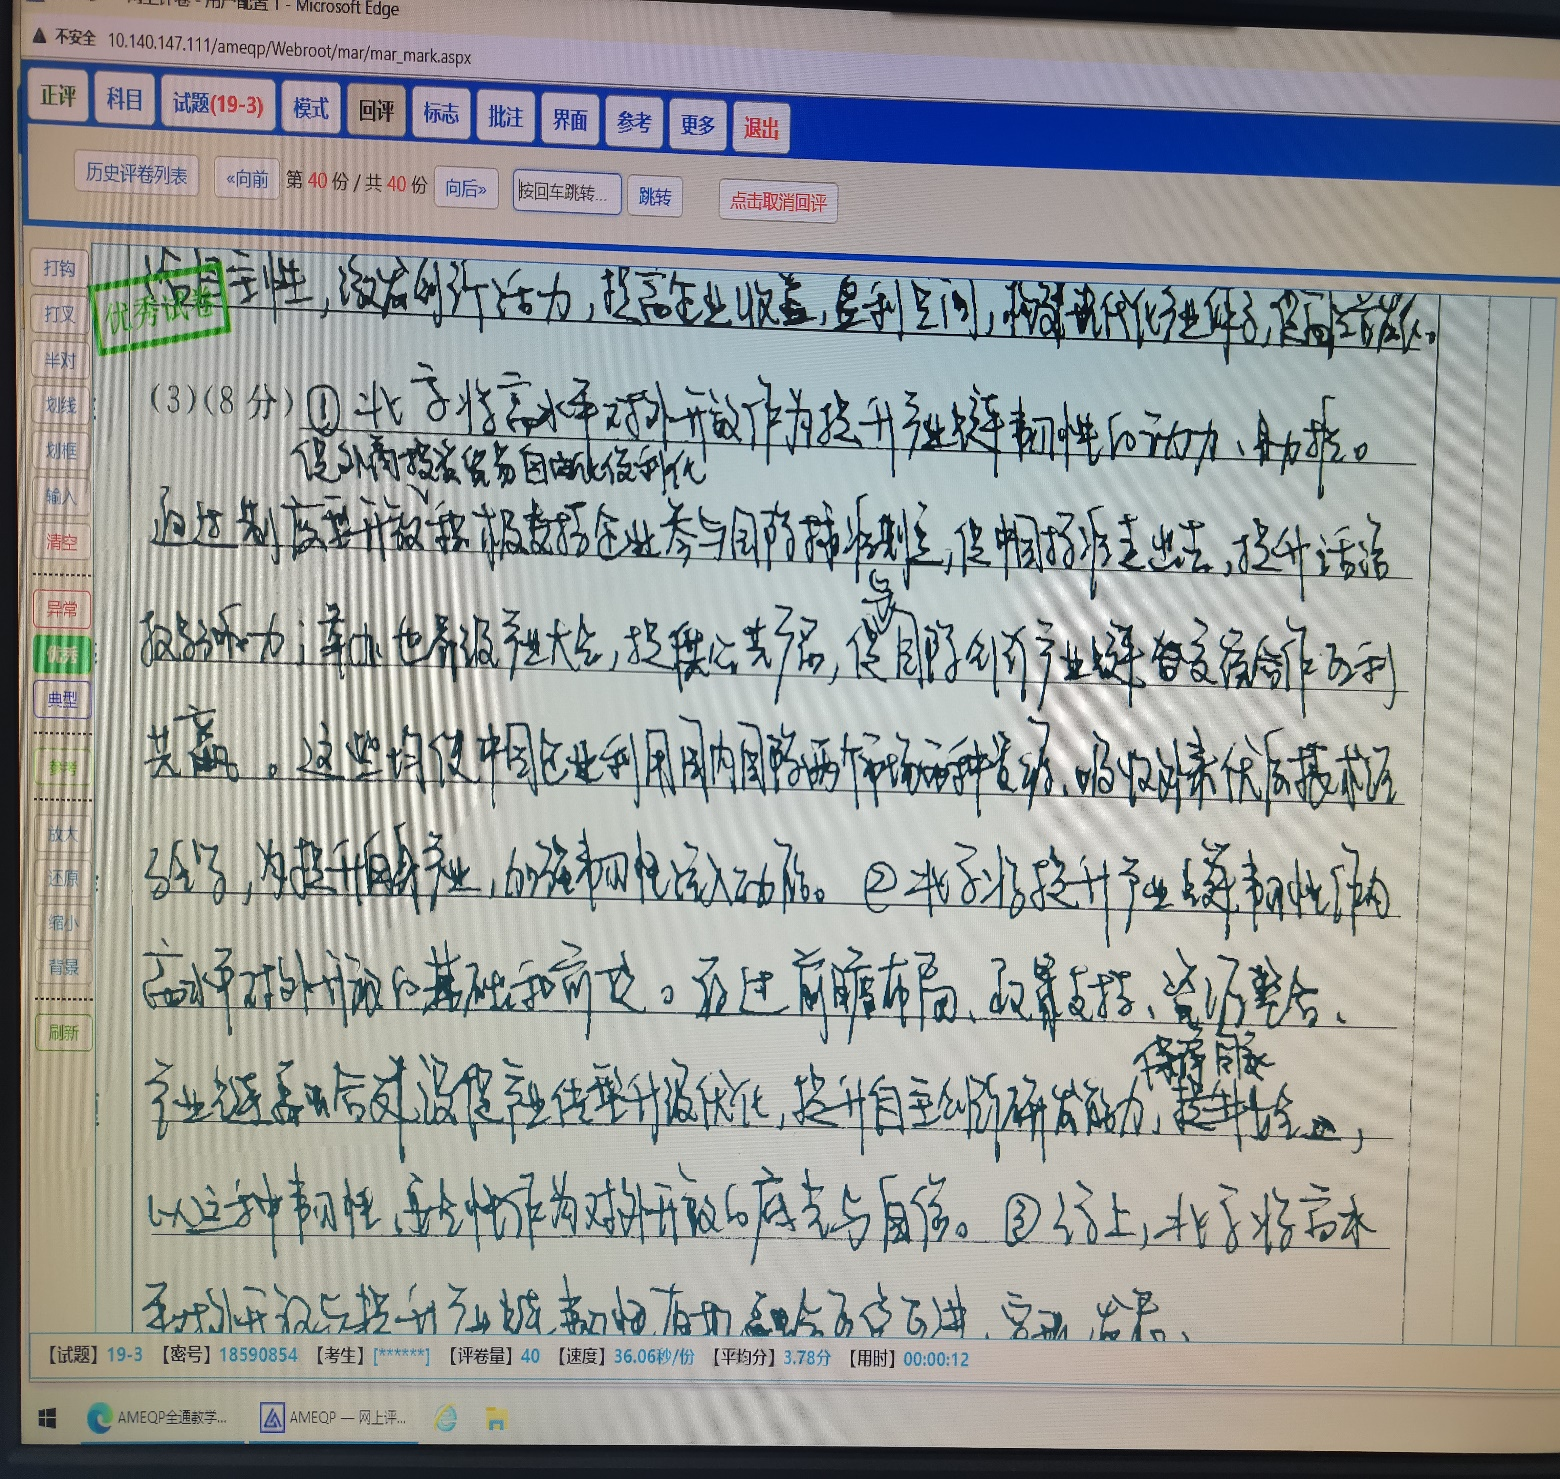 网上评卷 - 用户配置 1 - Microsoft Edge
不安全 10.140.147.111/ameqp/Webroot/mar/mar_mark.aspx
正评 科目 试题(19-3) 模式 回评 标志 批注 界面 参考 更多 退出
历史评卷列表 «向前 第 40 份 / 共 40 份 向后» 按回车跳转... 跳转 点击取消回评
打钩
打叉
半对
划线
划框
输入
清空
异常
优秀
典型
参考
放大
还原
缩小
背景
刷新
优秀试卷
主性，激发创新活力，提高企业收益，盈利空间，构建现代化产业体系，促高
(3)(8 分) ①北京将高水平对外开放作为提升产业链韧性的动力、助推。
促外商投资贸易自由化便利化
通过制度型开放积极支持企业参与国际标准制定，促中国标准走出去，提升话语
权影响力；举办世界级产业大会，提供公共产品，促国际创新产业链各交流合作互利
共赢。这些均使中国企业利用国内国际两个市场两种资源、吸收外来优质技术经
验等，为提升自身产业，的强韧性注入动能。②北京将提升产业链韧性作为
高水平对外开放的基础和前提。通过前瞻布局、政策支持、资源整合、
产业链 促产业转型升级优化，提升自主创新研发能力，
保障国家
以这种韧性、安全性作为对外开放的底气与自信。③综上，北京将高水
平对外开放与提升产业链韧性有机融合互促互进、实现发展、
【试题】19-3 【密号】18590854 【考生】[******] 【评卷量】40 【速度】36.06秒/份 【平均分】3.78分 【用时】00:00:12
AMEQP全通教学... AMEQP — 网上评...